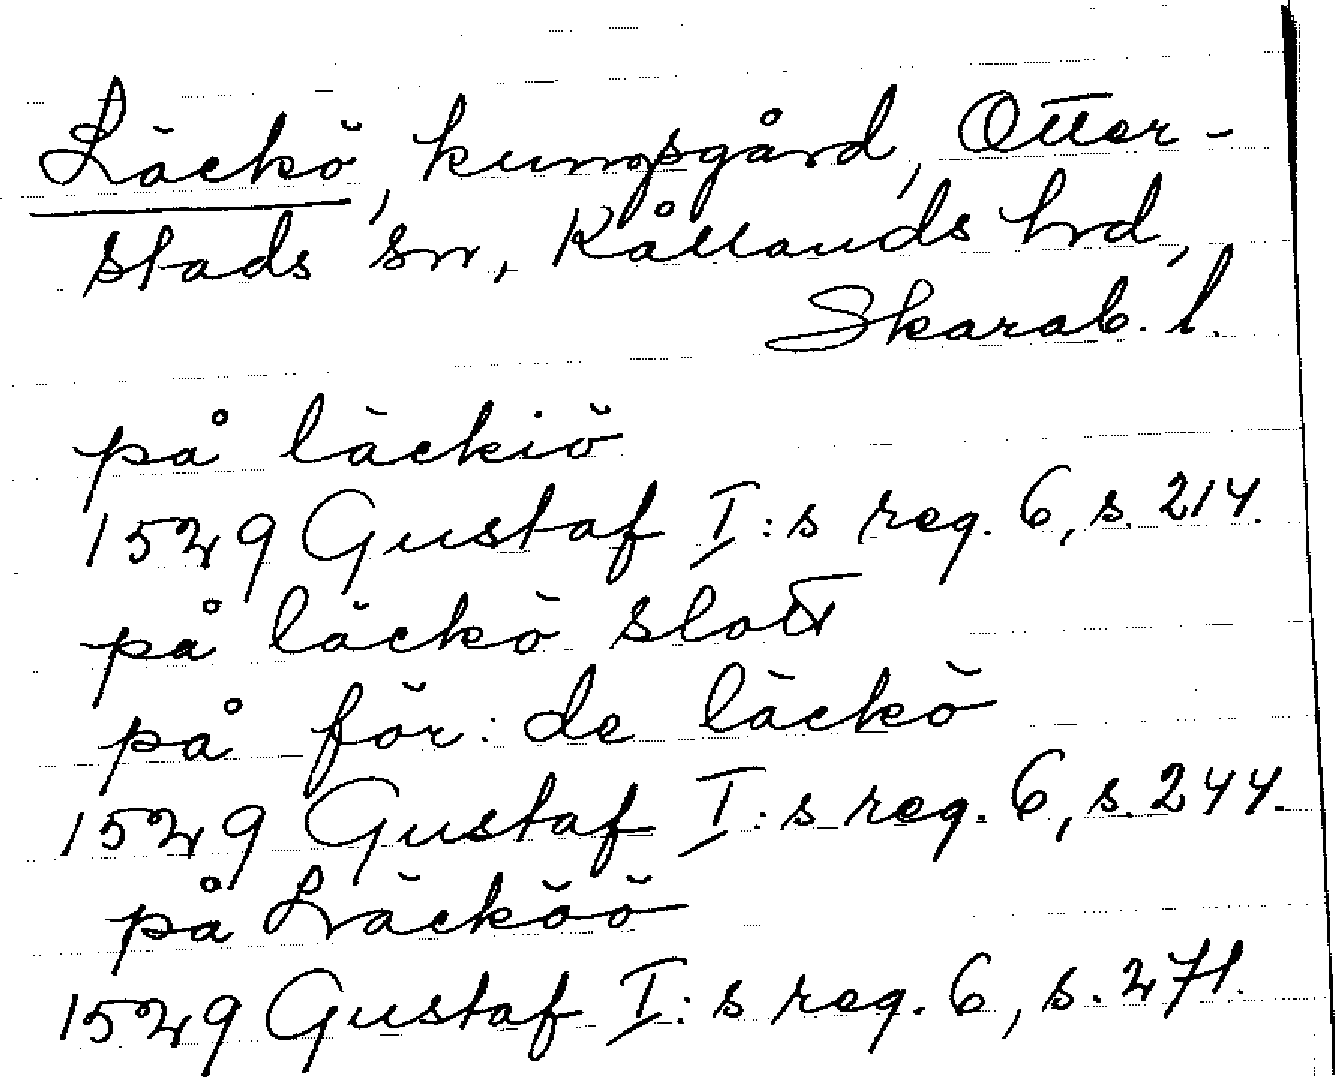 Läckö, kungsgård, Otter-
stads sn, Kållands hrd,
Skarab. l.
på läckiö
1529 Gustaf I:s reg. 6, s. 214.
på läckö slott
på för: de läckö
1529 Gustaf I:s reg. 6, s. 244.
på Läcköö
1529 Gustaf I:s reg. 6, s. 271.